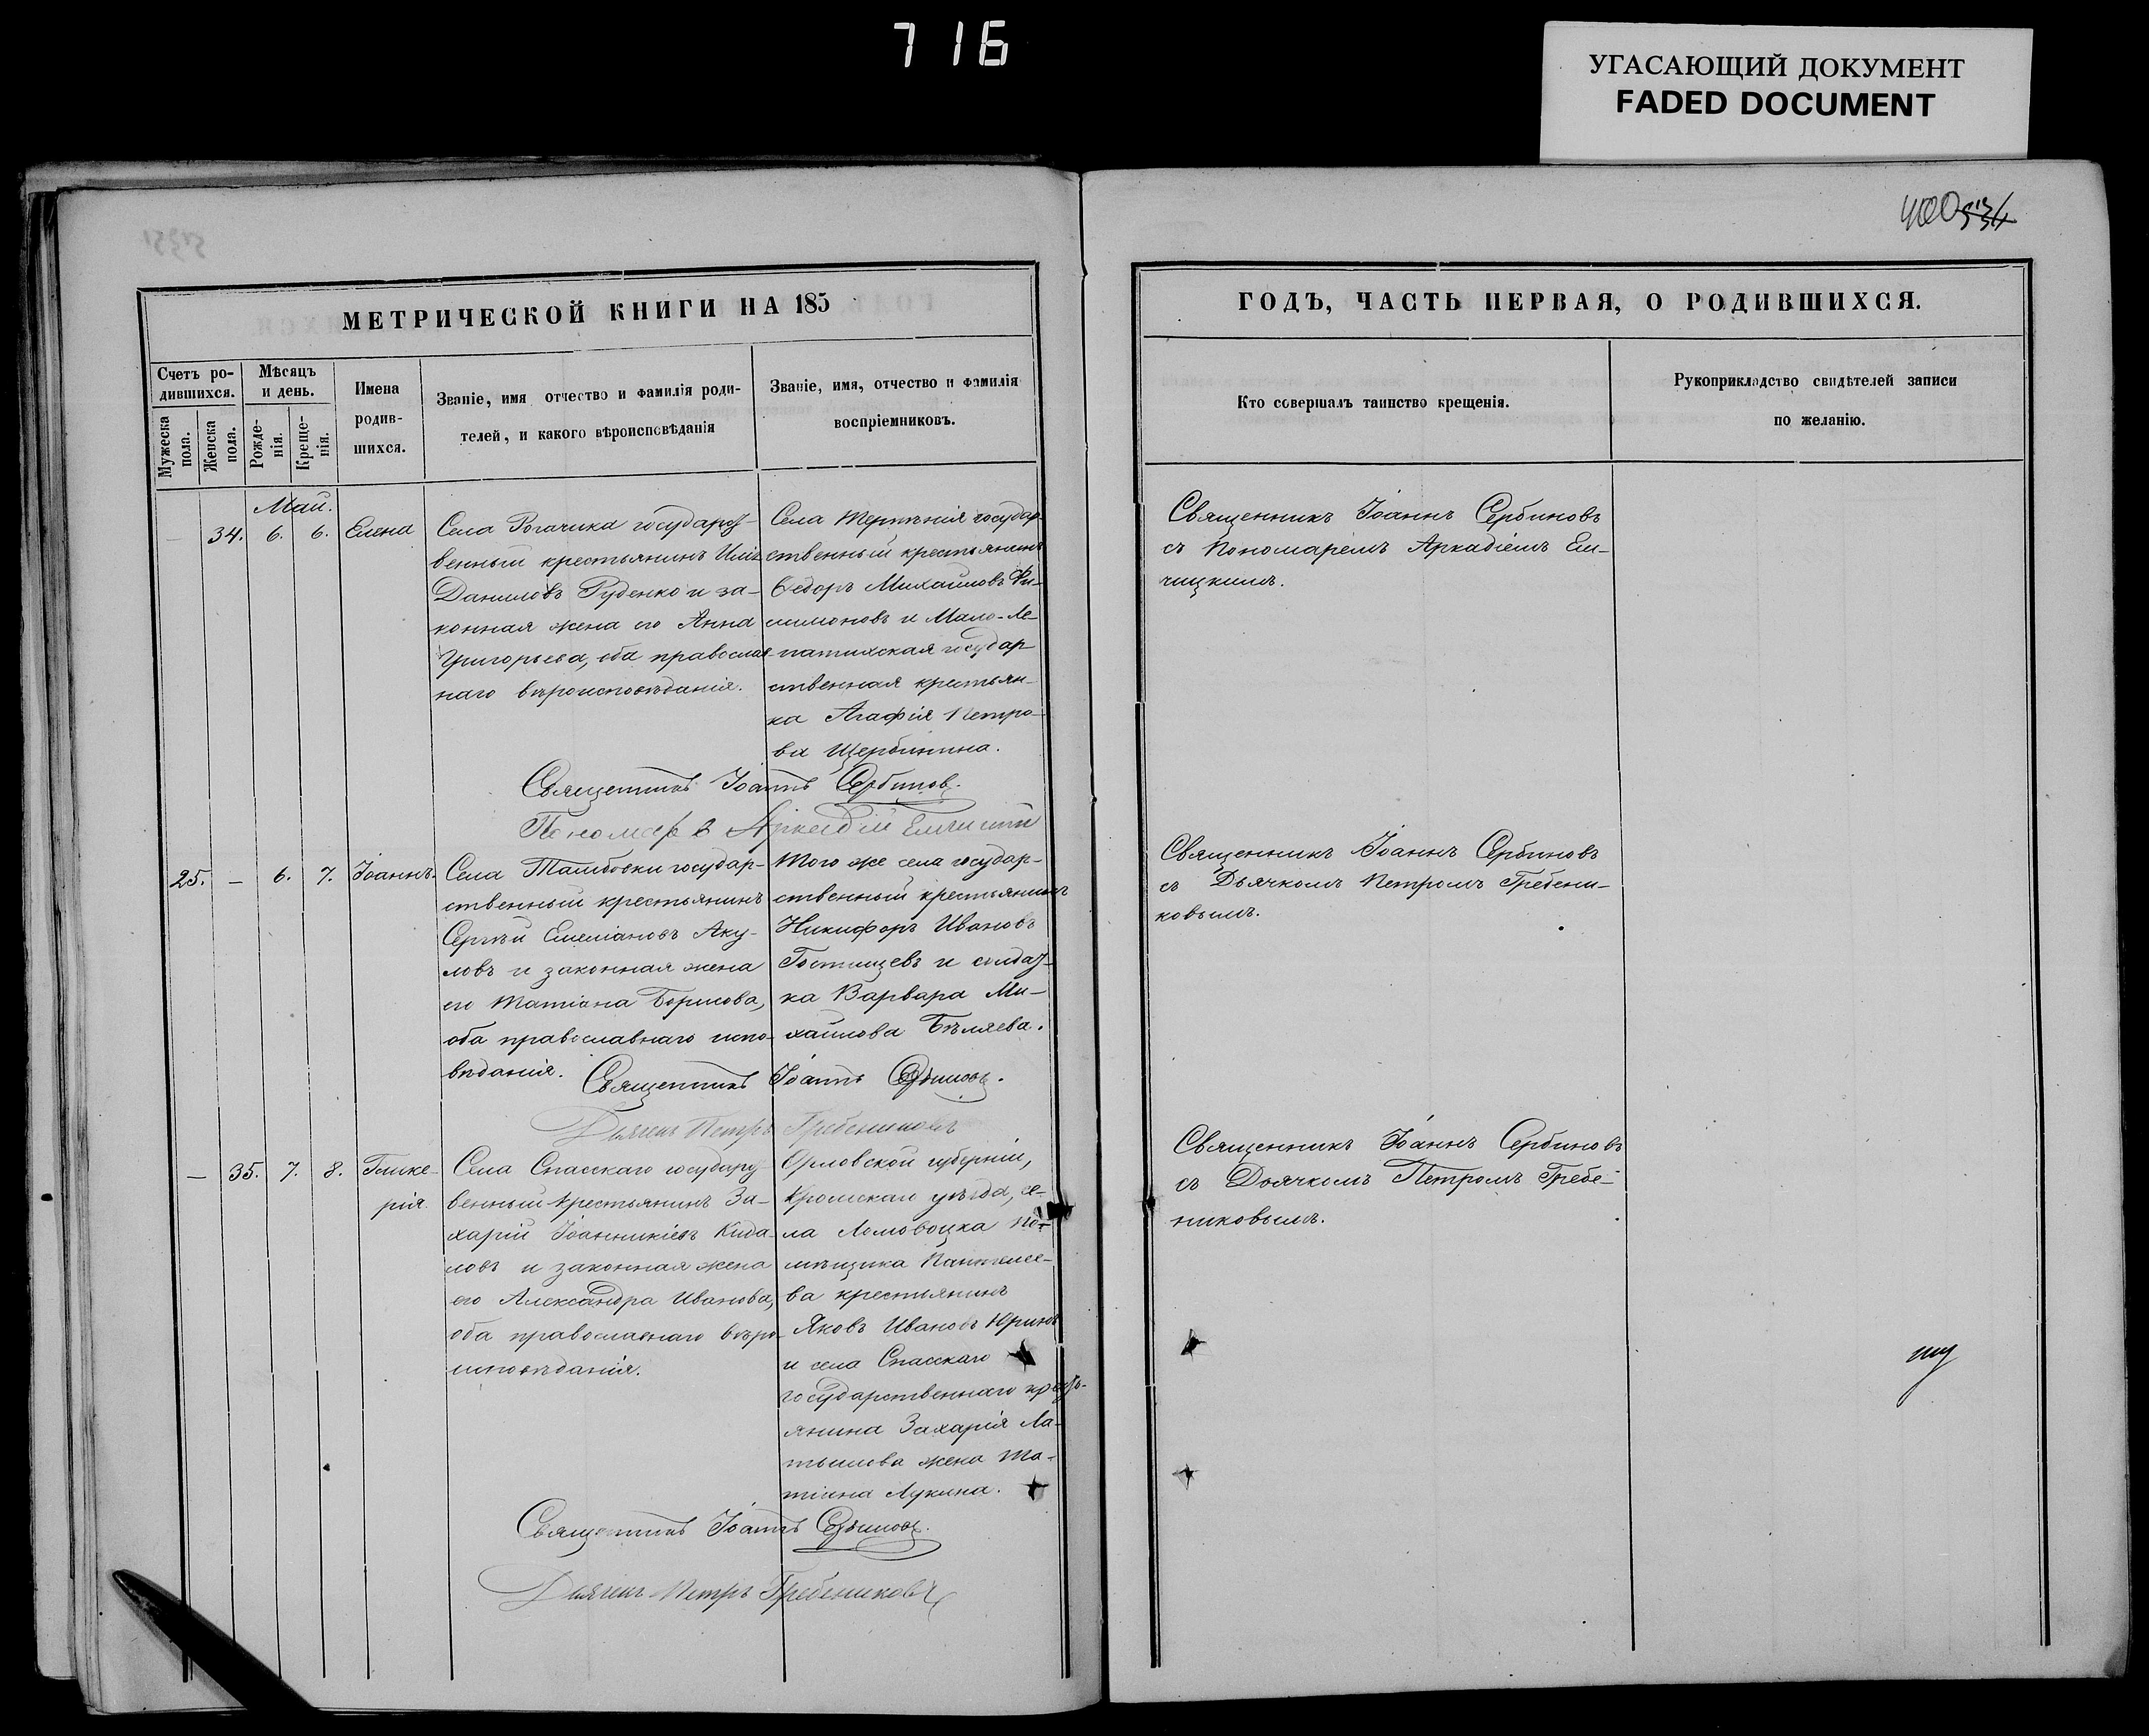 716
УГАСАЮЩИЙ ДОКУМЕНТ
FADED DOCUMENT
400 534
МЕТРИЧЕСКОЙ КНИГИ НА 185
Счетъ ро-
дившихся.
Мѣсяцъ
и день.
Мужеска
пола.
Женска
пола.
Рожде-
нія.
Креще-
нія.
Имена
родив-
шихся.
Званіе, имя отчество и фамилія роди-
телей, и какого вѣроисповѣданія
Званіе, имя, отчество и фамилія
воспріемниковъ.
Май.
— 34. 6. 6. Елена
Села Рогачика государст-
венный крестьянинъ
Даниловъ Руденко и за-
конная жена его Анна
Григорьева, оба православ-
наго вѣроисповѣданія.
Села Терпѣнія государ-
ственный крестьянинъ
Ѳедоръ Михайловъ Фи-
лимоновъ и Мало-Ле-
патихская государ-
ственная крестьян-
ка Агафія Петро-
ва Щербинина.
Священникъ Іоаннъ Сербиновъ.
Пономарь Аркадій
25. — 6. 7. Іоаннъ.
Села Тамбовки государ-
ственный крестьянинъ
Сергѣй Емеліановъ Аку-
ловъ и законная жена
его Татіана Борисова,
оба православнаго испо-
вѣданія.
Того же села государ-
ственный крестьянинъ
Никифоръ Ивановъ
Гостищевъ и солдат-
ка Варвара Ми-
хайлова Бѣляева.
Священникъ Іоаннъ Сербиновъ.
Дьячекъ Петръ Гребениковъ
— 35. 7. 8. Глике-
рія.
Села Спасскаго государст-
венный крестьянинъ За-
харій Іоанникіевъ Кида-
ловъ и законная жена
его Александра Иванова,
оба православнаго вѣро-
исповѣданія.
Орловской губерніи,
Кромскаго уѣзда, се-
ла Ломовоцка по-
мѣщика Пантелее-
ва крестьянинъ
Яковъ Ивановъ Юринъ
и села Спасскаго
государственнаго кресть-
янина Захарія Ла-
тышова жена Та-
тіана Лукина.
Священникъ Іоаннъ Сербиновъ.
Дьячекъ Петръ Гребениковъ
ГОДЪ, ЧАСТЬ ПЕРВАЯ, О РОДИВШИХСЯ.
Кто совершалъ таинство крещенія.
Рукоприкладство свидѣтелей записи
по желанію.
Священникъ Іоаннъ Сербиновъ
съ Пономаремъ Аркадіемъ Ел-
чицкимъ.
Священникъ Іоаннъ Сербиновъ
съ Дьячкомъ Петромъ Гребени-
ковымъ.
Священникъ Іоаннъ Сербиновъ
съ Дьячкомъ Петромъ Гребе-
никовымъ.